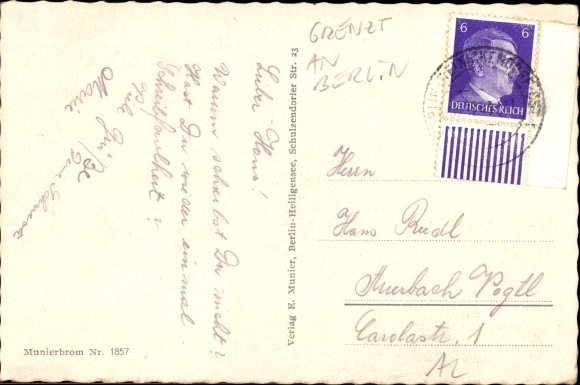 Lieber Hans!
Warum schreibst Du nicht?
Hast Du wieder einmal
Schreibfaulheit?
Marie
Verlag E. Munier, Berlin-Heiligensee, Schulzendorfer Str. 23
Munierbrom Nr. 1857
GRENZT
AN
BERLIN
6 6
DEUTSCHES REICH
Herrn
Hans Riedl
Auerbach Vogtl
Carolastr. 1